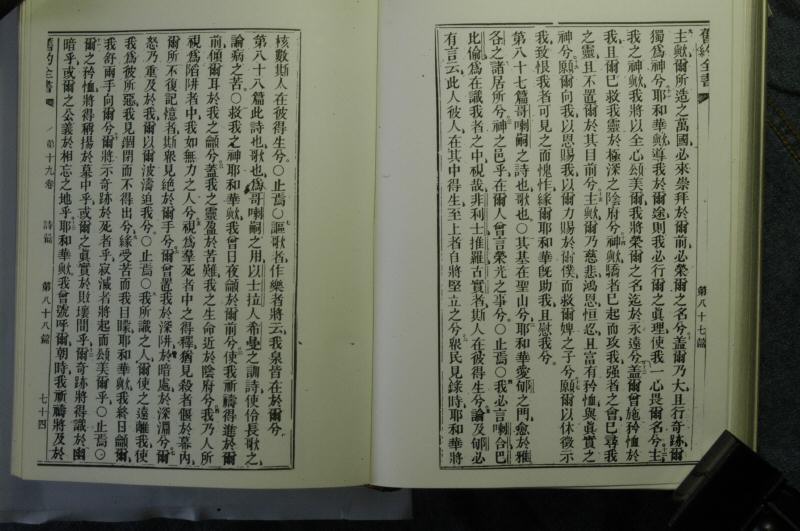 舊約全書
第八十七篇
主歟爾所造之萬國必來崇拜於爾前必榮爾之名兮蓋爾乃大且行奇跡爾
獨爲神兮耶和華歟導我於爾途則我必行爾之眞理使我一心畏爾名兮主
我之神歟我將以全心頌美爾我將榮爾之名迄於永遠兮蓋爾曾施矜恤於
我且爾已救我靈於極深之陰府兮神歟驕者已起而攻我強者之會已尋我
之靈且不置爾於其目前兮主歟爾乃慈悲鴻恩恒忍且富有矜恤與眞實之
神兮願爾向我以恩賜我以爾力賜於爾僕而救爾婢之子兮願爾以休徵示
我致恨我者可見之而愧怍緣爾耶和華旣助我且慰我兮
第八十七篇哥喇嗣之詩也歌也〇其基在聖山兮耶和華愛郇之門愈於雅
各之諸居所兮神之邑乎在爾人曾言榮光之事兮〇止焉〇我必言喇合巴
比倫爲在識我者之中視哉非利士推羅古實者斯人在彼得生兮論及郇必
有言云此人彼人在其中得生至上者自將堅立之兮衆民見錄時耶和華將
核數斯人在彼得生兮〇止焉〇謳歌者作樂者將云我泉皆在於爾兮
第八十八篇此詩也歌也爲哥喇嗣之用以士拉人希曼之訓詩使伶長歌之
論病之苦〇救我之神耶和華歟我曾日夜籲於爾前兮使我祈禱得進於爾
前傾爾耳於我之籲兮蓋我之靈盈於苦難我之生命近於陰府兮我乃人所
視爲陷阱者中我如無力之人兮視爲羣死者中之得釋猶見殺者偃於幕內
爾所不復記憶者斯衆見絕於爾手兮爾曾置我於深阱於暗處於深淵兮爾
怒乃重及於我爾以爾波濤迫我兮〇止焉〇我所識之人爾使之遠離我使
我爲彼所惡我見錮閉而不得出兮緣受苦而我目矇耶和華歟我終日籲爾
我舒兩手向爾兮爾將示奇跡於死者乎寂滅者將起而頌美爾乎〇止焉〇
爾之矜恤將得稱揚於墓中乎或爾之眞實於敗壞間乎爾奇跡將得識於幽
暗乎或爾之公義於相忘之地乎耶和華歟我曾號呼爾朝時我祈禱將及於
舊約全書
第十九卷
詩篇
第八十八篇
七十四